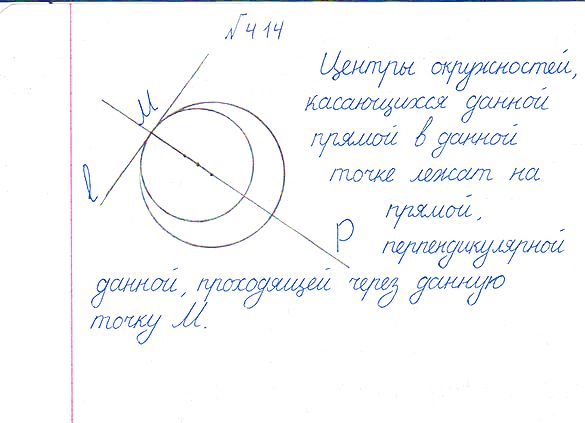 №414
Центры окружностей,
касающихся данной
прямой в данной
точке лежат на
прямой,
перпендикулярной
данной, проходящей через данную
точку М.
М
l
P